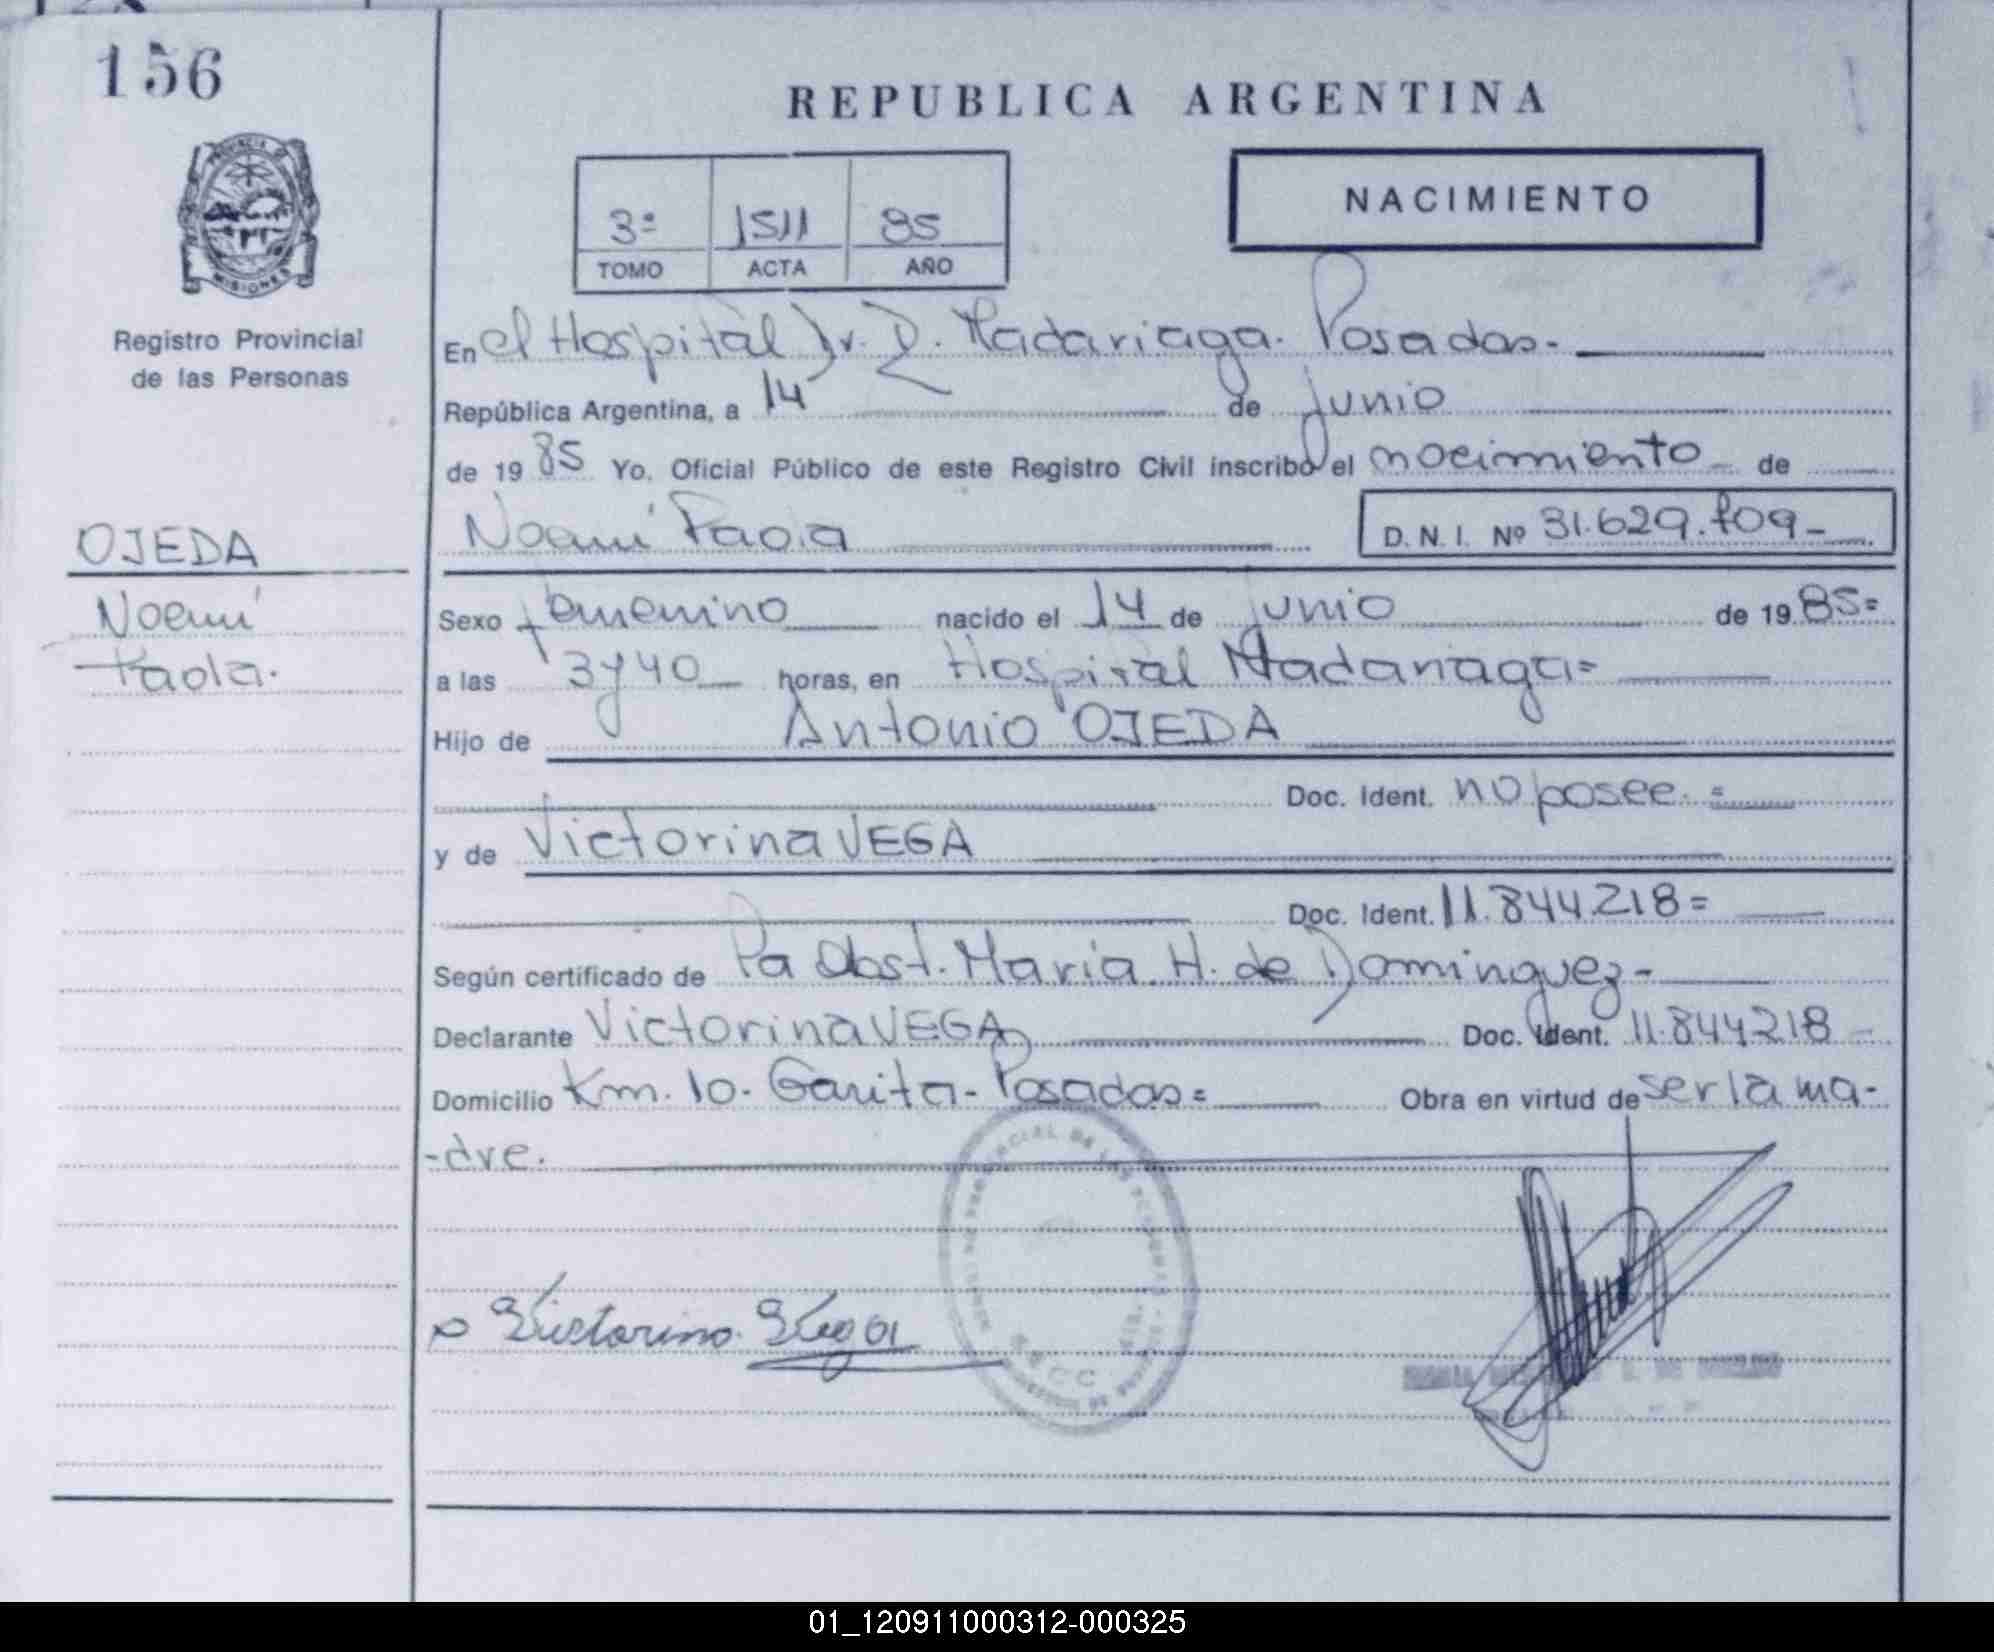 156
REPUBLICA ARGENTINA
3º 1511 85
TOMO ACTA AÑO
NACIMIENTO
PROVINCIA DE
MISIONES
Registro Provincial
de las Personas
En el Hospital Dr. R. Madariaga. Posadas.
República Argentina, a 14 de junio
de 1985 Yo, Oficial Público de este Registro Civil inscribo el nacimiento de
Noemí Paola D.N.I. Nº 31.629.709-
OJEDA
Noemí
Paola.
Sexo femenino nacido el 14 de junio de 1985=
a las 3y40 horas, en Hospital Madariaga=
Hijo de Antonio OJEDA
Doc. Ident. no posee. =
y de Victorina VEGA
Doc. Ident. 11.844.218=
Según certificado de Pa Obst. María H. de Dominguez-
Declarante Victorina VEGA Doc. Ident. 11.844218
Domicilio Km. 10. Garita - Posadas= Obra en virtud de ser la ma-
-dre.
Victorina Vega
01_120911000312-000325